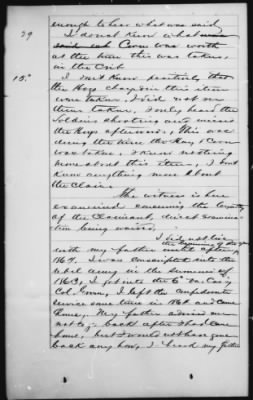 29
enough to hear what was said.
I do not know what
corn was worth
at the time this was taken,
in the Crib
15.
I don't know positively that
the Hogs charged in this item
were taken, I did not see
them taken, I only heard the
Soldiers shooting and missed
the Hogs afterwards, This was
during the time the Hay & Corn
was taken, I know nothing
more about this item, I don't
know anything more about
the Claim.
The witness is here
examined concerning the loyalty
of the Claimant, direct examina-
tion being waived.
I did not live
the beginning of the war
with my father until after
1867. I was conscripted into the
rebel army in the summer of
1863, I put into the 6" Va Cavy
Col. I left the confederate
service some time in 1864 and came
home, My father advised me
not to go back after I had come
home, but I would not have gone
back any how, I heard my father